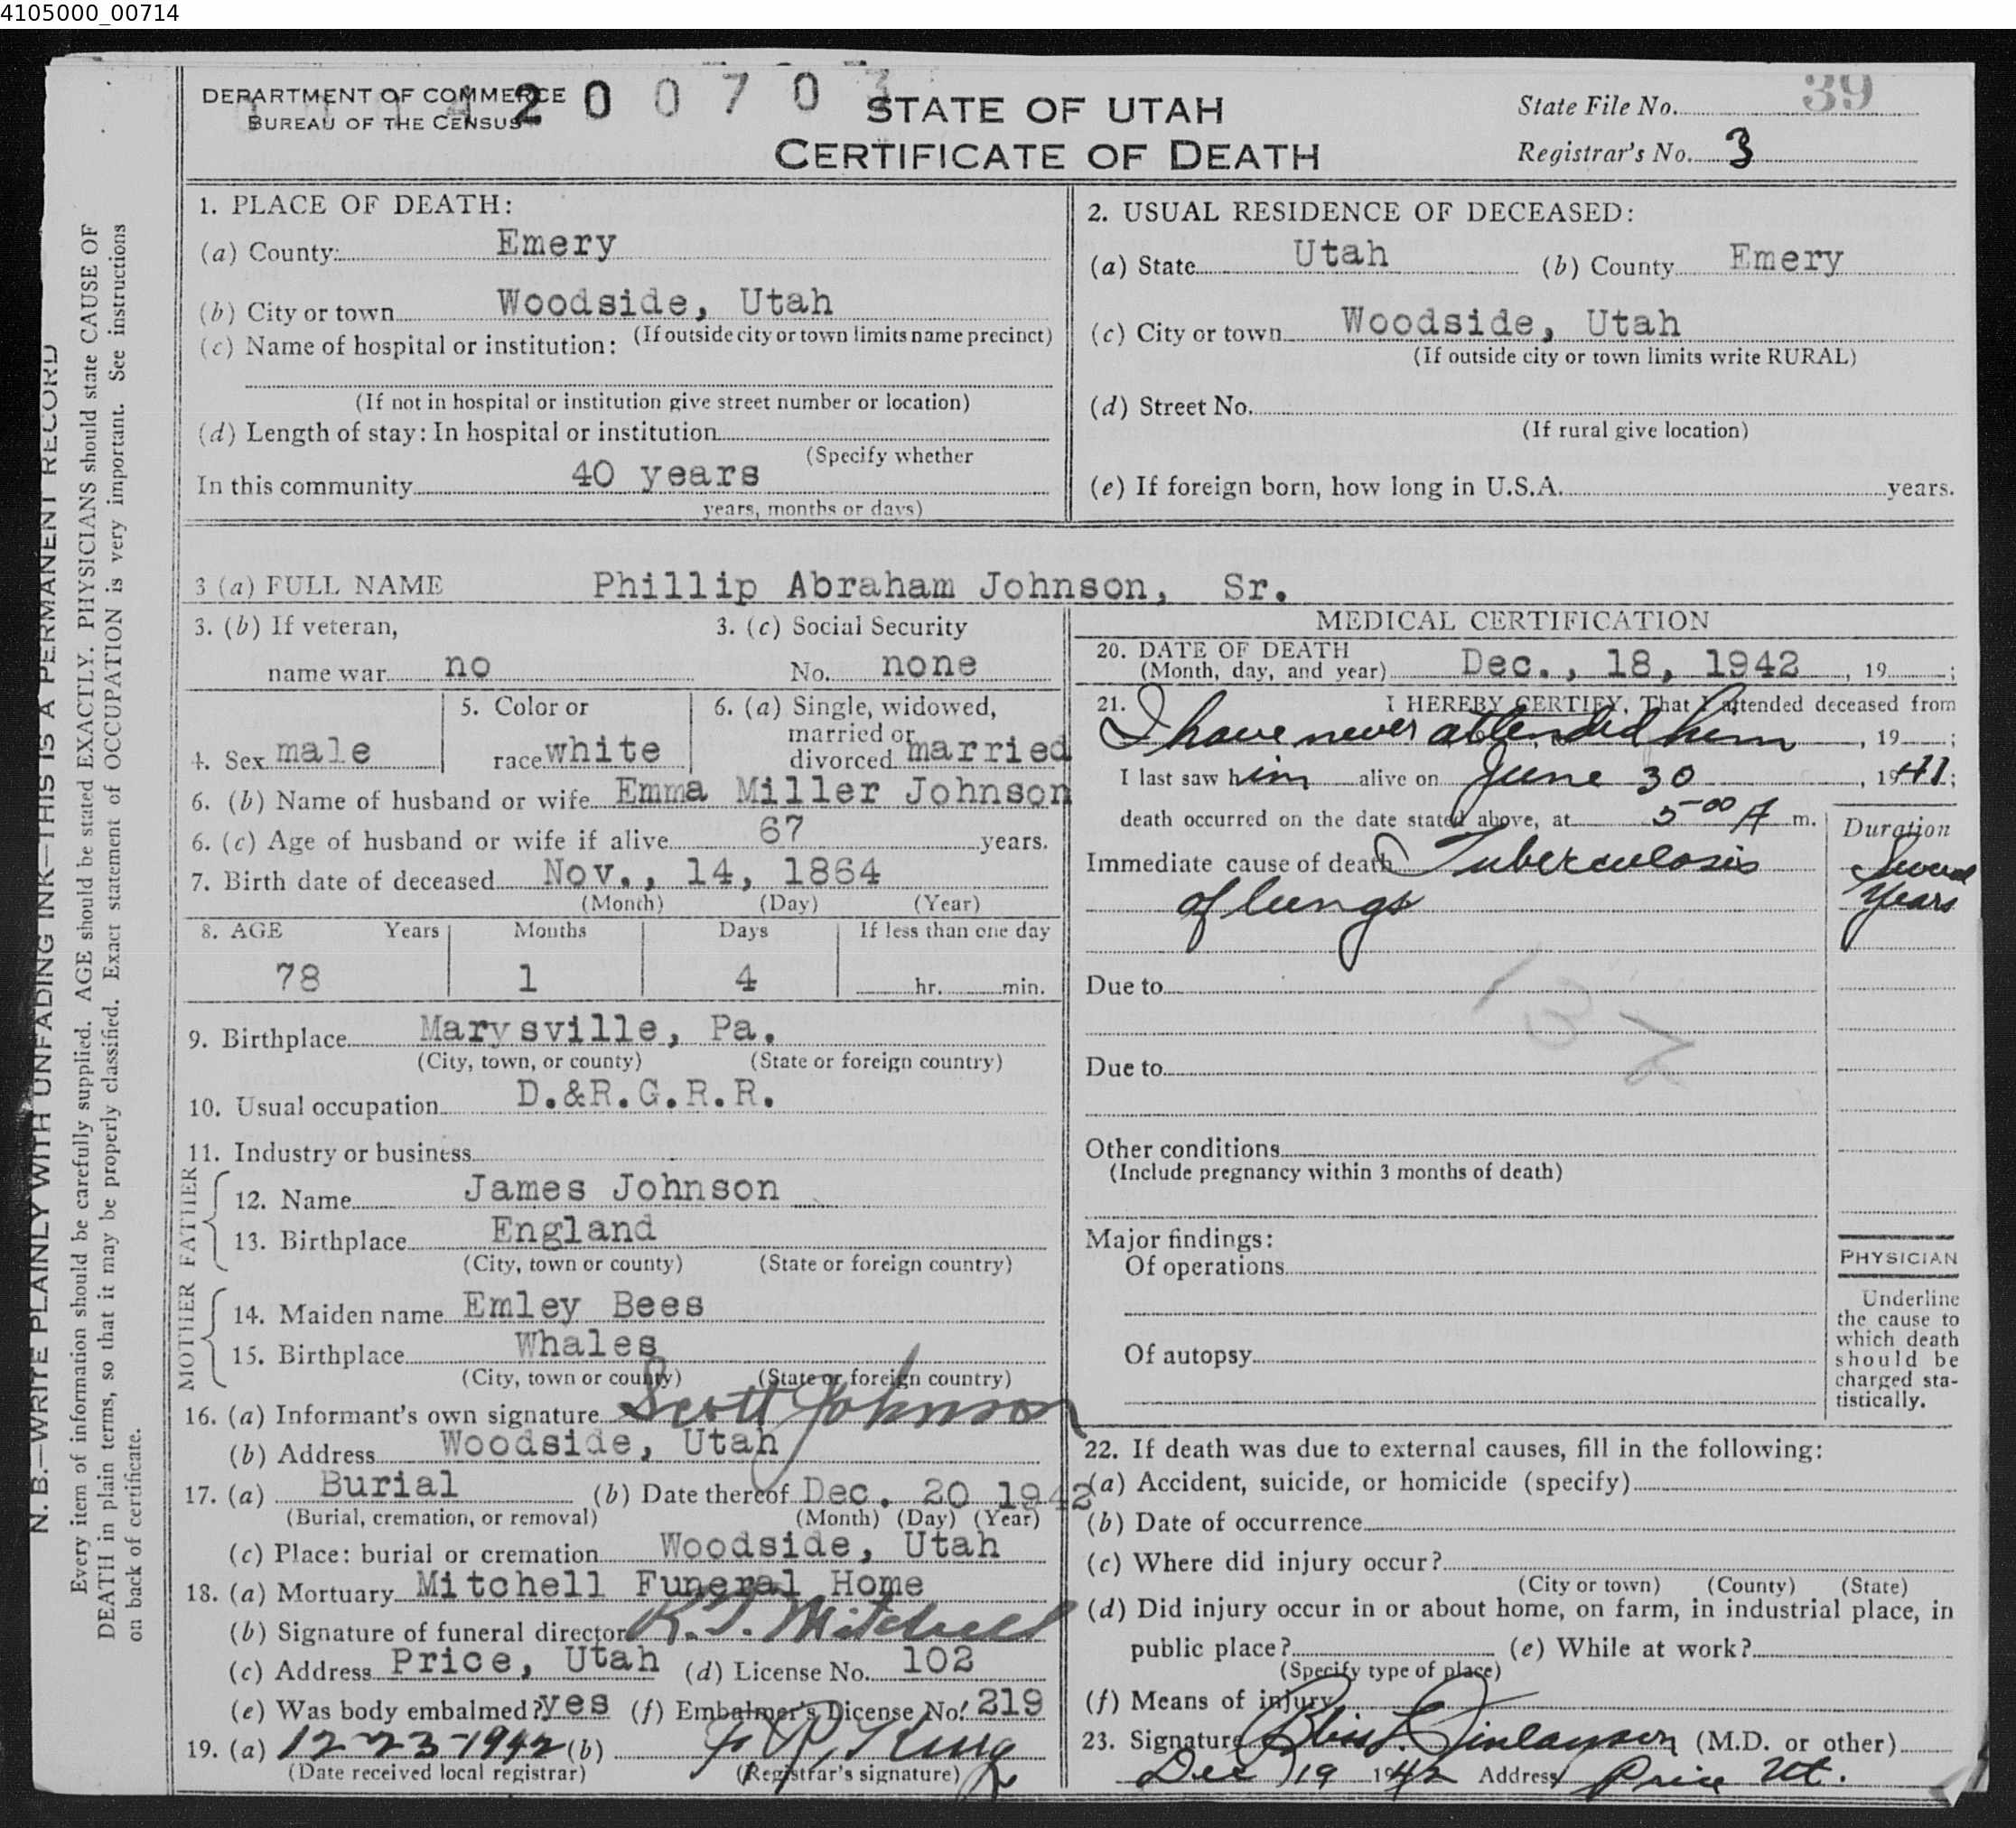 4105000_00714
DEPARTMENT OF COMMERCE
BUREAU OF THE CENSUS
2 0 0 7 0 3
STATE OF UTAH
CERTIFICATE OF DEATH
State File No. 39
Registrar's No. 3
1. PLACE OF DEATH:
(a) County: Emery
(b) City or town Woodside, Utah
(If outside city or town limits name precinct)
(c) Name of hospital or institution:
(If not in hospital or institution give street number or location)
(d) Length of stay: In hospital or institution
(Specify whether
In this community 40 years
years, months or days)
2. USUAL RESIDENCE OF DECEASED:
(a) State Utah (b) County Emery
(c) City or town Woodside, Utah
(If outside city or town limits write RURAL)
(d) Street No.
(If rural give location)
(e) If foreign born, how long in U.S.A. years.
3 (a) FULL NAME Phillip Abraham Johnson, Sr.
3. (b) If veteran, 3. (c) Social Security
name war no No. none
4. Sex male
5. Color or
race white
6. (a) Single, widowed,
married or
divorced married
6. (b) Name of husband or wife Emma Miller Johnson
6. (c) Age of husband or wife if alive 67 years.
7. Birth date of deceased Nov., 14, 1864
(Month) (Day) (Year)
8. AGE Years Months Days If less than one day
78 1 4 hr. min.
9. Birthplace Marysville, Pa.
(City, town, or county) (State or foreign country)
10. Usual occupation D.&R.G.R.R.
11. Industry or business
FATHER
12. Name James Johnson
13. Birthplace England
(City, town or county) (State or foreign country)
MOTHER
14. Maiden name Emley Bees
15. Birthplace Whales
(City, town or county) (State or foreign country)
16. (a) Informant's own signature Scott Johnson
(b) Address Woodside, Utah
17. (a) Burial (b) Date thereof Dec. 20 1942
(Burial, cremation, or removal) (Month) (Day) (Year)
(c) Place: burial or cremation Woodside, Utah
18. (a) Mortuary Mitchell Funeral Home
(b) Signature of funeral director R. T. Mitchell
(c) Address Price, Utah (d) License No. 102
(e) Was body embalmed? yes (f) Embalmer's License No. 219
19. (a) 12-23-1942 (b) King
(Date received local registrar) (Registrar's signature)
MEDICAL CERTIFICATION
20. DATE OF DEATH
(Month, day, and year) Dec., 18, 1942, 19 ;
21. I HEREBY CERTIFY, That I attended deceased from
I have never attended him , 19 ;
I last saw him alive on June 30, 1941;
death occurred on the date stated above, at 5 00 A m.
Duration
Immediate cause of death Tuberculosis
of lungs
Several
Years
Due to
132
Due to
Other conditions
(Include pregnancy within 3 months of death)
Major findings:
Of operations
Of autopsy
PHYSICIAN
Underline
the cause to
which death
should be
charged sta-
tistically.
22. If death was due to external causes, fill in the following:
(a) Accident, suicide, or homicide (specify)
(b) Date of occurrence
(c) Where did injury occur?
(City or town) (County) (State)
(d) Did injury occur in or about home, on farm, in industrial place, in
public place? (e) While at work?
(Specify type of place)
(f) Means of injury
23. Signature Bliss L. Finlayson (M.D. or other)
Dec 19 1942 Address Price Ut.
N. B.—WRITE PLAINLY WITH UNFADING INK—THIS IS A PERMANENT RECORD
Every item of information should be carefully supplied. AGE should be stated EXACTLY. PHYSICIANS should state CAUSE OF
DEATH in plain terms, so that it may be properly classified. Exact statement of OCCUPATION is very important. See instructions
on back of certificate.